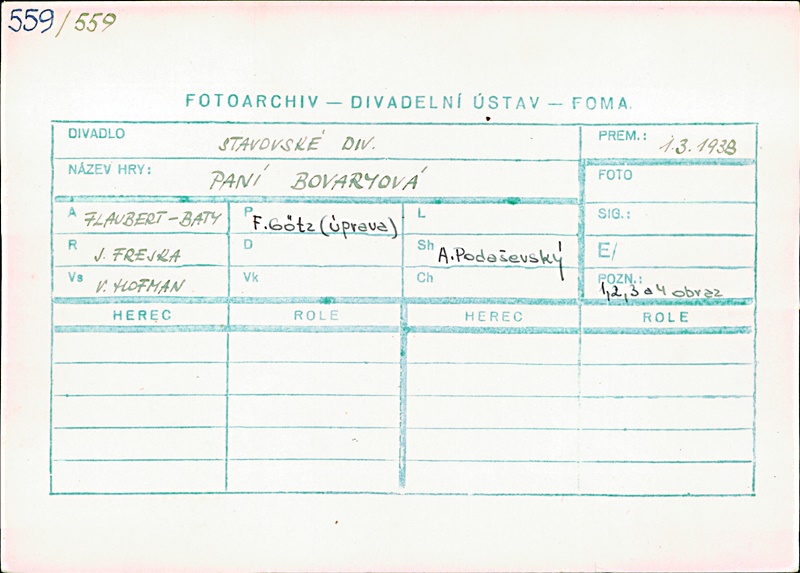 559/559
FOTOARCHIV — DIVADELNÍ ÚSTAV — FOMA.
DIVADLO STAVOVSKÉ DIV. PREM.: 1.3.1938
NÁZEV HRY: PANÍ BOVARYOVÁ FOTO
A FLAUBERT-BATY P F. Götz (úprava) L SIG.:
R J. FREJKA D Sh A. Podaševský E/
Vs V. HOFMAN Vk Ch POZN.: 1,2,3 a 4 obraz
HEREC ROLE HEREC ROLE